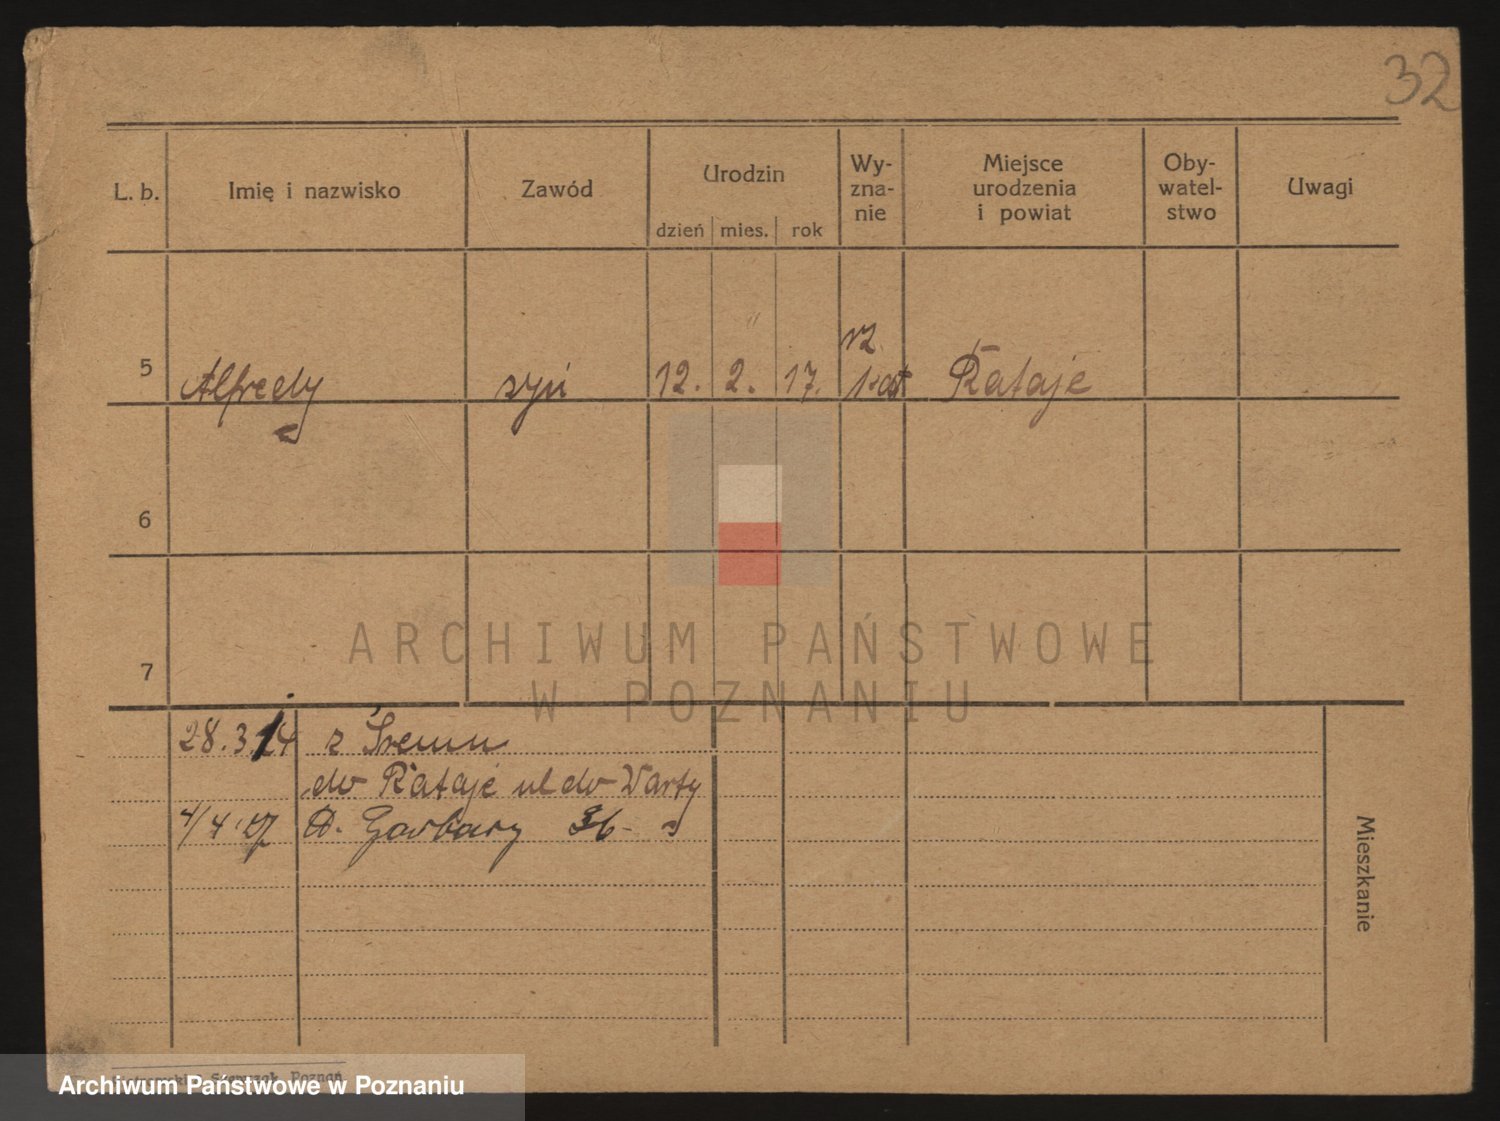 32
L. b. Imię i nazwisko Zawód Urodzin Wy-zna-nie Miejsce urodzenia i powiat Oby-watel-stwo Uwagi
dzień mies. rok
5 Alfredy syn 12. 2. 17. rz. kat Rataje
6
7
ARCHIWUM PAŃSTWOWE
W POZNANIU
28.3.14 z Śremu
do Rataje ul do Warty
4/4 27 D. Garbary 36-
Mieszkanie
Poznań
Archiwum Państwowe w Poznaniu